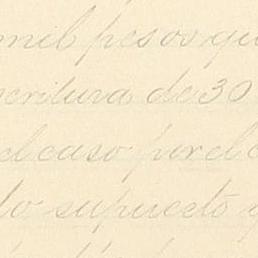 mil pesos qu
critura de 30
el caso por el
to supuesto q